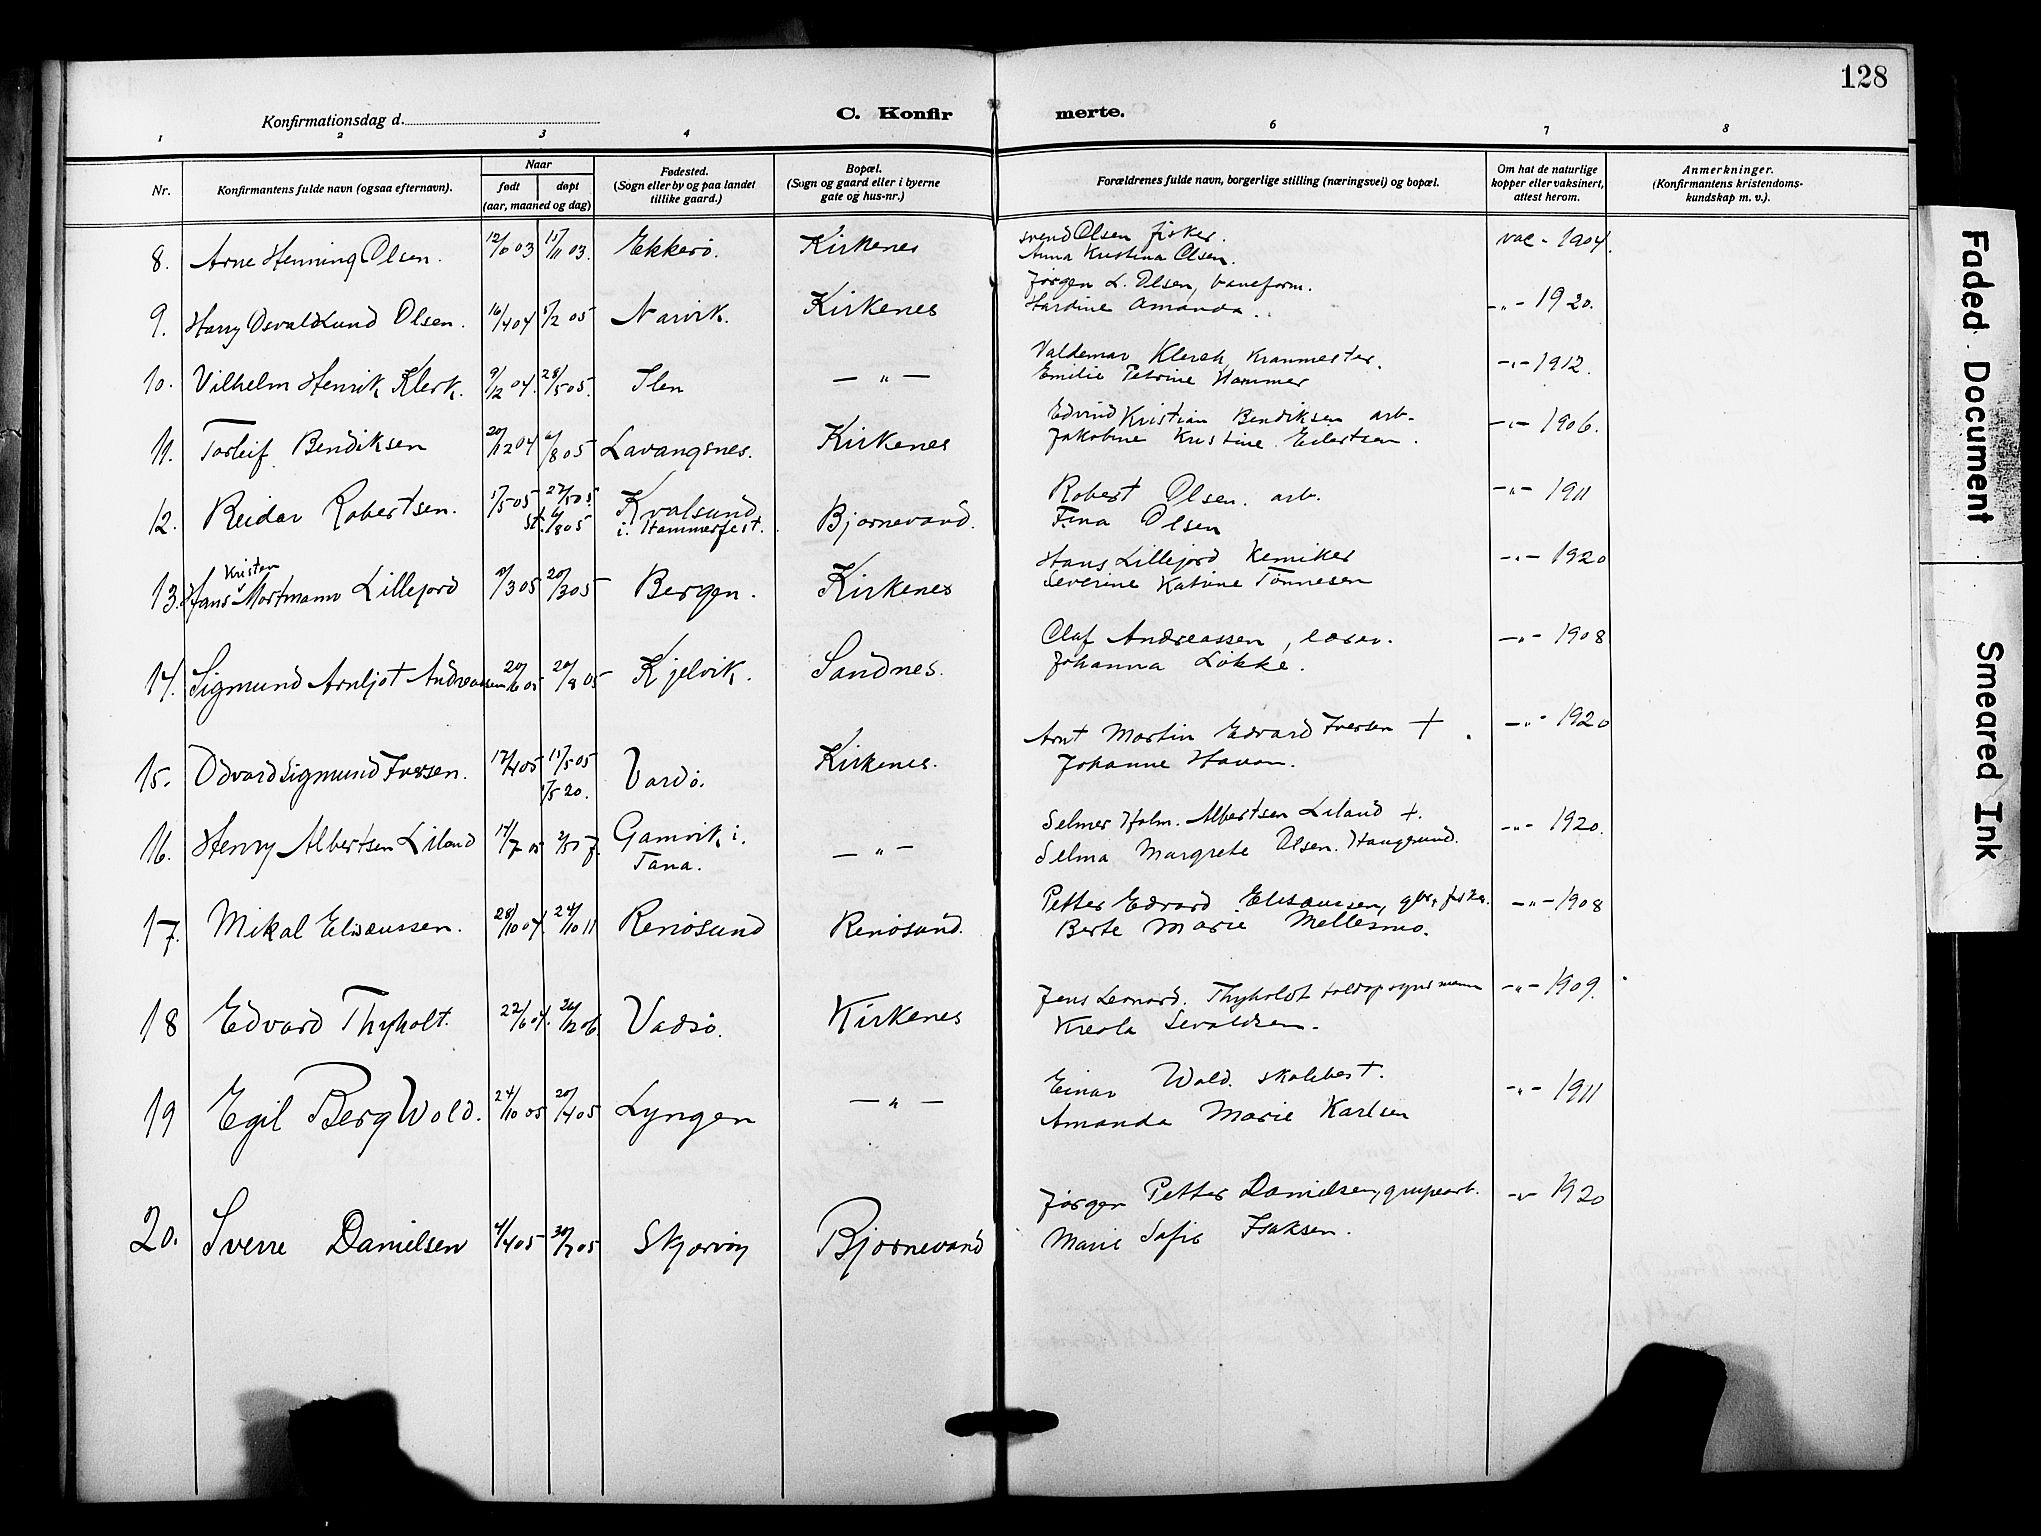 128
Konfirmationsdag d.
C. Konfir merte.
1 2 3 4 6 7 8
Nr.
Konfirmantens fulde navn (ogsaa efternavn).
Naar
født døpt
(aar, maaned og dag)
Fødested.
(Sogn eller by og paa landet
tillike gaard.)
Bopæl.
(Sogn og gaard eller i byerne
gate og hus-nr.)
Forældrenes fulde navn, borgerlige stilling (næringsvei) og bopæl.
Om hat de naturlige
kopper eller vaksinert,
attest herom.
Anmerkninger.
(Konfirmantens kristendoms-
kundskap m. v.).
8. Arne Henning Olsen. 03 15/11 03. Ekkerö. Kirkenes Svend Olsen fisker. vac - 1904.
Anna Kristina Olsen.
9. Harry Osvald Lund Olsen. 16/4 04 5/2 05 Narvik. Kirkenes Jørgen L. Olsen, baneform. -„- 1920.
Hardine Amanda.
10. Vilhelm Henrik Klerk. 9/12 04. 28/5 05. Ilen —„— Valdemar Klerck, Kranmester. -„- 1912.
Emilie Petrine Hammer
11. Torleif Bendiksen 20/12 04 6/8 05 Lavangsnes. Kirkenes Edvind Kristian Bendiksen arb. -„- 1906.
Jakobine Kristine Eilertsen.
12. Reidar Robertsen. 1/5 05 27/5 05. Kvalsund Bjørnevand. Robert Olsen. arb. -„- 1911
st. 6/8 05 i. Hammerfest. Fina Olsen
Kristen
13. Hans Mortmann Lillejord /3 05 20/3 05 Bergen. Kirkenes Hans Lillejord Kemiker -„- 1920
Severine Katrine Tønnesen
14. Sigmund Arnljot Andreassen 20/6 05 20/8 05 Kjelvik. Sandnes. Olaf Andreassen, lærer. -„- 1908
Johanna Løkke.
15. Odvard Sigmund Iversen. 17/4 05 15/5 05 Vardö. Kirkenes. Arnt Martin Edvard Iversen + -„- 1920
/5 20. Johanne Havan.
16. Henry Albertsen Liland 14/7 05 Gamvik i. —„— Selmer Holm. Albertsen Liland +. -„- 1920.
Tana. Selma Margrete Olsen. Haugesund.
17. Mikal Elisæussen. 28/10 04. 24/10 11 Renøsund Renøsund. Petter Edvard Elisæussen, gbr, fisker. -„- 1908
Berte Marie Mellesmo.
18 Edvard Thyholt. 22/6 04. 26/12 06. Vadsö. Kirkenes Jens Leonard. Thyholdt toldopsynsmann -„- 1909.
Kreola Sivaldsen.
19 Egil Berg Wold. 24/10 05 20/4 05 Lyngen —„— Einar Wold. skolebest. -„- 1911
Amanda Marie Karlsen
20. Sverre Danielsen 4/4 05 30/7 05 Skjervöy Bjørnevand Jørgen Petter Danielsen, grubearb. -„- 1920
Marie Sofie Isaksen.
Faded Document
Smeared Ink